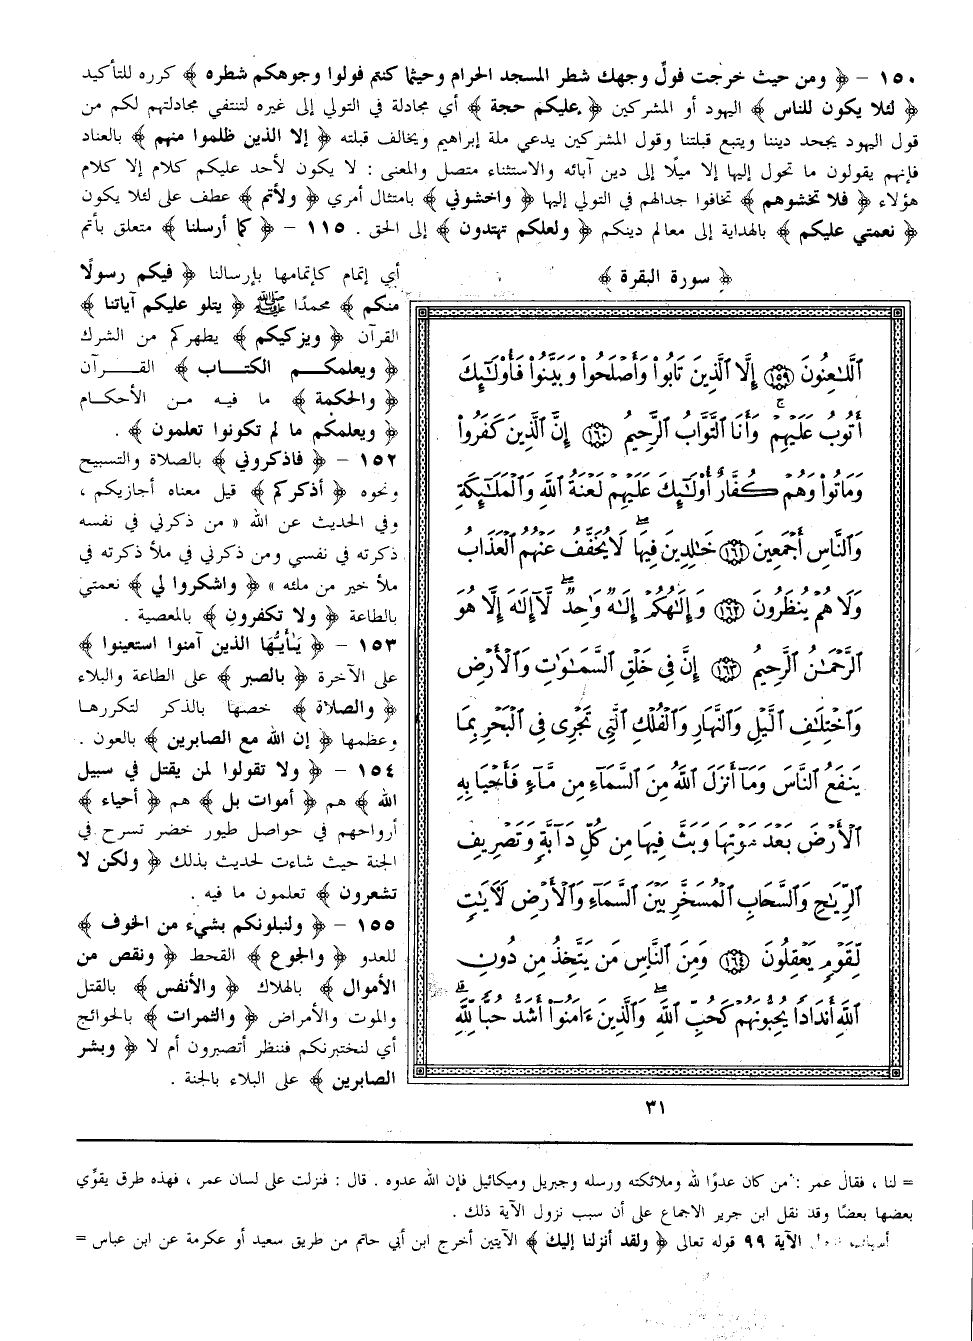 ١٥٠ – ﴿ ومن حيث خرجت فولّ وجهك شطر المسجد الحرام وحيثما كنتم فولوا وجوهكم شطره ﴾ كرره للتأكيد
﴿ لئلا يكون للناس ﴾ اليهود أو المشركين ﴿ عليكم حجة ﴾ أي مجادلة في التولي إلى غيره لتنتفي مجادلتهم لكم من
قول اليهود يجحد ديننا ويتبع قبلتنا وقول المشركين يدعي ملة إبراهيم ويخالف قبلته ﴿ إلا الذين ظلموا منهم ﴾ بالعناد
فإنهم يقولون ما تحول إليها إلا ميلًا إلى دين آبائه والاستثناء متصل والمعنى : لا يكون لأحد عليكم كلام إلا كلام
هؤلاء ﴿ فلا تخشوهم ﴾ تخافوا جدالهم في التولي إليها ﴿ واخشوني ﴾ بامتثال أمري ﴿ ولأتم ﴾ عطف على لئلا يكون
﴿ نعمتي عليكم ﴾ بالهداية إلى معالم دينكم ﴿ ولعلكم تهتدون ﴾ إلى الحق . ١١٥ – ﴿ كما أرسلنا ﴾ متعلق بأتم
أي إتمام كإتمامها بإرسالنا ﴿ فيكم رسولًا
منكم ﴾ محمدًا ﷺ ﴿ يتلو عليكم آياتنا ﴾
القرآن ﴿ ويزكيكم ﴾ يطهركم من الشرك
﴿ ويعلمكم الكتاب ﴾ القرآن
﴿ والحكمة ﴾ ما فيه من الأحكام
﴿ ويعلمكم ما لم تكونوا تعلمون ﴾ .
١٥٢ – ﴿ فاذكروني ﴾ بالصلاة والتسبيح
ونحوه ﴿ أذكركم ﴾ قيل معناه أجازيكم ،
وفي الحديث عن الله « من ذكرني في نفسه
ذكرته في نفسي ومن ذكرني في ملأ ذكرته في
ملأ خير من ملئه » ﴿ واشكروا لي ﴾ نعمتي
بالطاعة ﴿ ولا تكفرون ﴾ بالمعصية .
١٥٣ – ﴿ يٰأيُّها الذين آمنوا استعينوا ﴾
على الآخرة ﴿ بالصبر ﴾ على الطاعة والبلاء
﴿ والصلاة ﴾ خصها بالذكر لتكررها
وعظمها ﴿ إن الله مع الصابرين ﴾ بالعون .
١٥٤ – ﴿ ولا تقولوا لمن يقتل في سبيل
الله ﴾ هم ﴿ أموات بل ﴾ هم ﴿ أحياء ﴾
أرواحهم في حواصل طيور خضر تسرح في
الجنة حيث شاءت لحديث بذلك ﴿ ولكن لا
تشعرون ﴾ تعلمون ما فيه .
١٥٥ – ﴿ ولنبلونكم بشيء من الخوف ﴾
للعدو ﴿ والجوع ﴾ القحط ﴿ ونقص من
الأموال ﴾ بالهلاك ﴿ والأنفس ﴾ بالقتل
والموت والأمراض ﴿ والثمرات ﴾ بالحوائج
أي لنختبرنكم فننظر أتصبرون أم لا ﴿ وبشر
الصابرين ﴾ على البلاء بالجنة .
﴿ سورة البقرة ﴾
ٱللَّٰعِنُونَ ١٥٩ إِلَّا ٱلَّذِينَ تَابُوا۟ وَأَصْلَحُوا۟ وَبَيَّنُوا۟ فَأُو۟لَٰٓئِكَ
أَتُوبُ عَلَيْهِمْ ۚ وَأَنَا ٱلتَّوَّابُ ٱلرَّحِيمُ ١٦٠ إِنَّ ٱلَّذِينَ كَفَرُوا۟
وَمَاتُوا۟ وَهُمْ كُفَّارٌ أُو۟لَٰٓئِكَ عَلَيْهِمْ لَعْنَةُ ٱللَّهِ وَٱلْمَلَٰٓئِكَةِ
وَٱلنَّاسِ أَجْمَعِينَ ١٦١ خَٰلِدِينَ فِيهَا ۖ لَا يُخَفَّفُ عَنْهُمُ ٱلْعَذَابُ
وَلَا هُمْ يُنظَرُونَ ١٦٢ وَإِلَٰهُكُمْ إِلَٰهٌ وَٰحِدٌ ۖ لَّآ إِلَٰهَ إِلَّا هُوَ
ٱلرَّحْمَٰنُ ٱلرَّحِيمُ ١٦٣ إِنَّ فِى خَلْقِ ٱلسَّمَٰوَٰتِ وَٱلْأَرْضِ
وَٱخْتِلَٰفِ ٱلَّيْلِ وَٱلنَّهَارِ وَٱلْفُلْكِ ٱلَّتِى تَجْرِى فِى ٱلْبَحْرِ بِمَا
يَنفَعُ ٱلنَّاسَ وَمَآ أَنزَلَ ٱللَّهُ مِنَ ٱلسَّمَآءِ مِن مَّآءٍ فَأَحْيَا بِهِ
ٱلْأَرْضَ بَعْدَ مَوْتِهَا وَبَثَّ فِيهَا مِن كُلِّ دَآبَّةٍ وَتَصْرِيفِ
ٱلرِّيَٰحِ وَٱلسَّحَابِ ٱلْمُسَخَّرِ بَيْنَ ٱلسَّمَآءِ وَٱلْأَرْضِ لَءَايَٰتٍ
لِّقَوْمٍ يَعْقِلُونَ ١٦٤ وَمِنَ ٱلنَّاسِ مَن يَتَّخِذُ مِن دُونِ
ٱللَّهِ أَندَادًا يُحِبُّونَهُمْ كَحُبِّ ٱللَّهِ ۖ وَٱلَّذِينَ ءَامَنُوٓا۟ أَشَدُّ حُبًّا لِّلَّهِ ۗ
٣١
= لنا ، فقال عمر : من كان عدوًا لله وملائكته ورسله وجبريل وميكائيل فإن الله عدوه . قال : فنزلت على لسان عمر ، فهذه طرق يقوِّي
بعضها بعضًا وقد نقل ابن جرير الاجماع على أن سبب نزول الآية ذلك .
الآية ٩٩ قوله تعالى ﴿ ولقد أنزلنا إليك ﴾ الآيتين أخرج ابن أبي حاتم من طريق سعيد أو عكرمة عن ابن عباس =